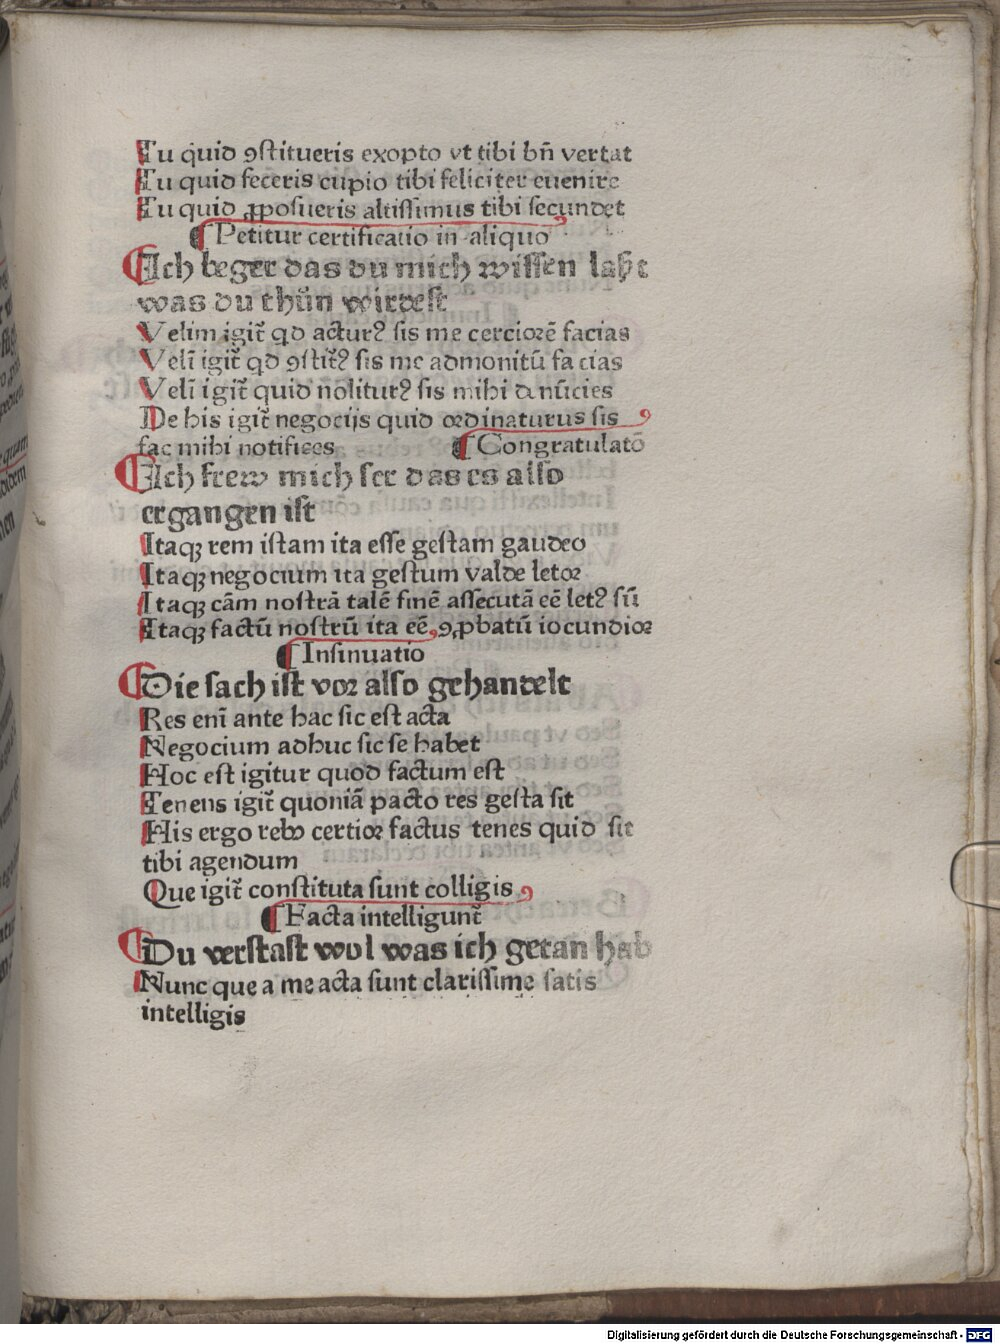 Tu quid ꝯstitueris exopto vt tibi bn̄ vertat
Tu quid feceris cupio tibi feliciter euenire
Tu quid ꝓposueris altissimus tibi secundet
¶ Petitur certificatio in aliquo
¶ Ich beger das du mich wissen laßt
was du thůn wirdest
Velim igit̄ qd acturꝰ sis me cerciorē facias
Velī igit̄ qd ꝯstit̄ꝰ sis me admonitū facias
Velī igit̄ quid moliturꝰ sis mihi denūcies
De his igit̄ negocijs quid ordinaturus sis
fac mihi notifices ¶ Congratulatō
¶ Ich frew mich ser das es also
ergangen ist
Itaqꝫ rem istam ita esse gestam gaudeo
Itaqꝫ negocium ita gestum valde letor
Itaqꝫ cām nostrā talē finē assecutā eē letꝰ sū
Itaqꝫ factū nostrū ita eē ꝯꝓbatū iocundior
¶ Insinuatio
¶ Die sach ist vor also gehandelt
Res enī ante hac sic est acta
Negocium adhuc sic se habet
Hoc est igitur quod factum est
Tenens igit̄ quoniā pacto res gesta sit
His ergo rebꝫ certior factus tenes quid sit
tibi agendum
Que igit̄ constituta sunt colligis
¶ Facta intelligunt̄
¶ Du verstast wol was ich getan hab
Nunc que a me acta sunt clarissime satis
intelligis
Digitalisierung gefördert durch die Deutsche Forschungsgemeinschaft - DFG